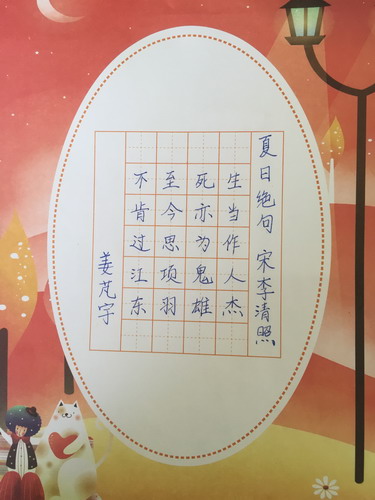 夏日绝句 宋李清照
生当作人杰
死亦为鬼雄
至今思项羽
不肯过江东
姜芃宇